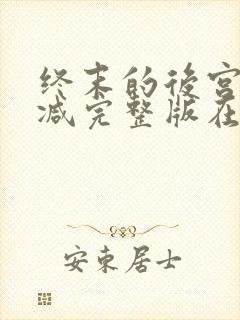 终末的後宫
减完整版在
安东居士